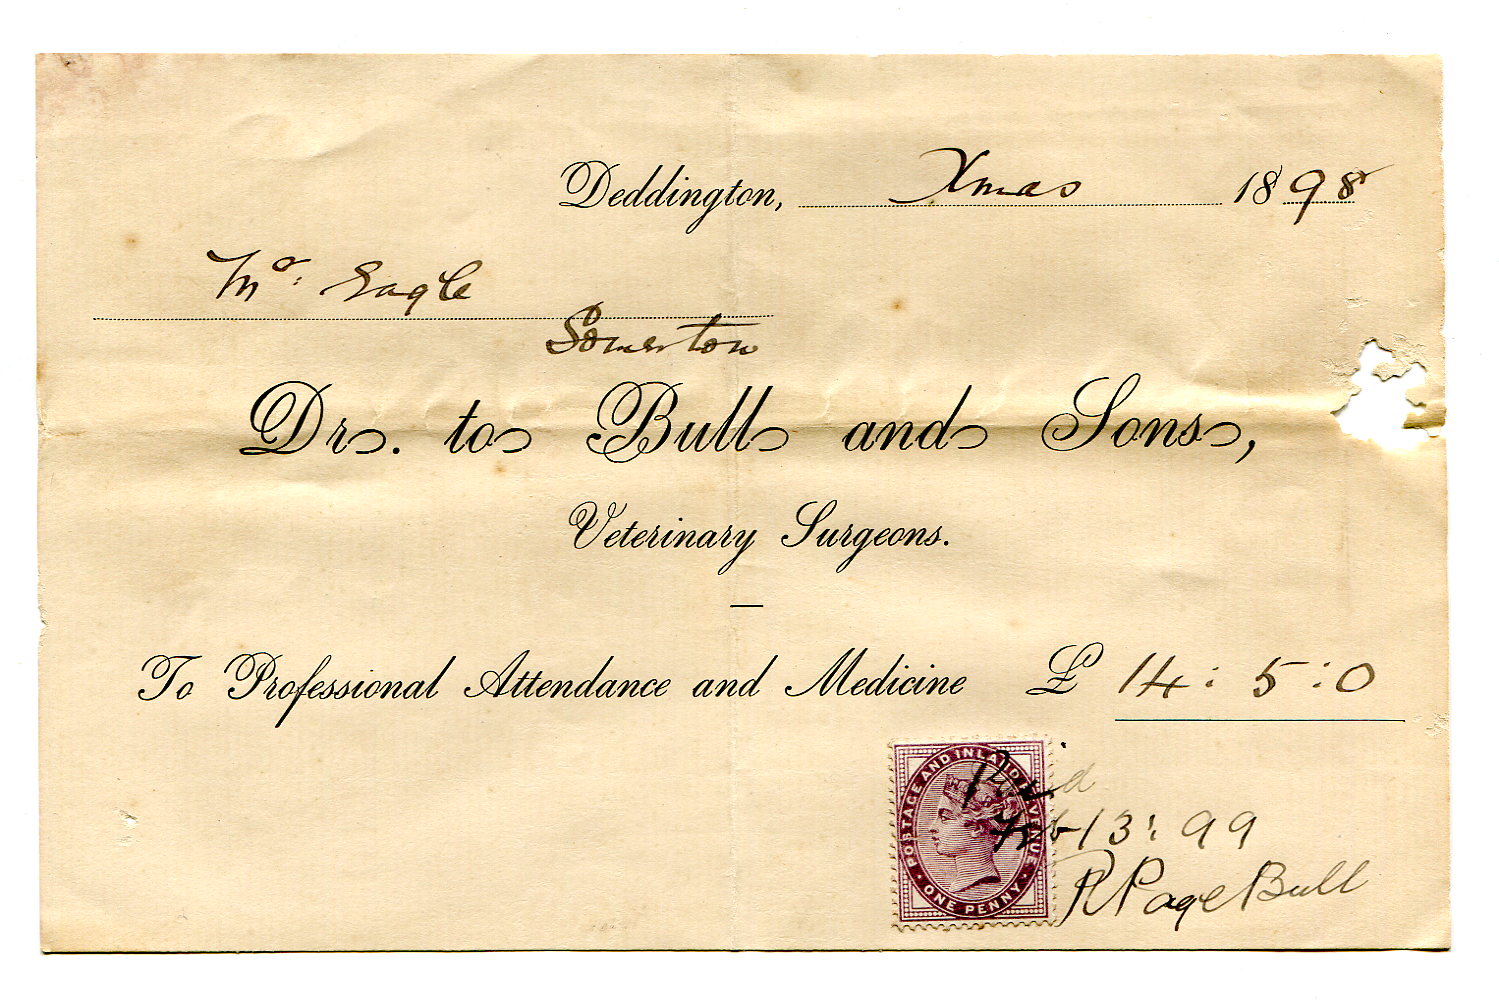 Deddington, Xmas 1898
Mr. Eagle
Somerton
Dr. to Bull and Sons,
Veterinary Surgeons.
—
To Professional Attendance and Medicine £ 14 : 5 : 0
POSTAGE AND INLAND REVENUE
ONE PENNY
Paid
Feb 13 : 99
R Page Bull